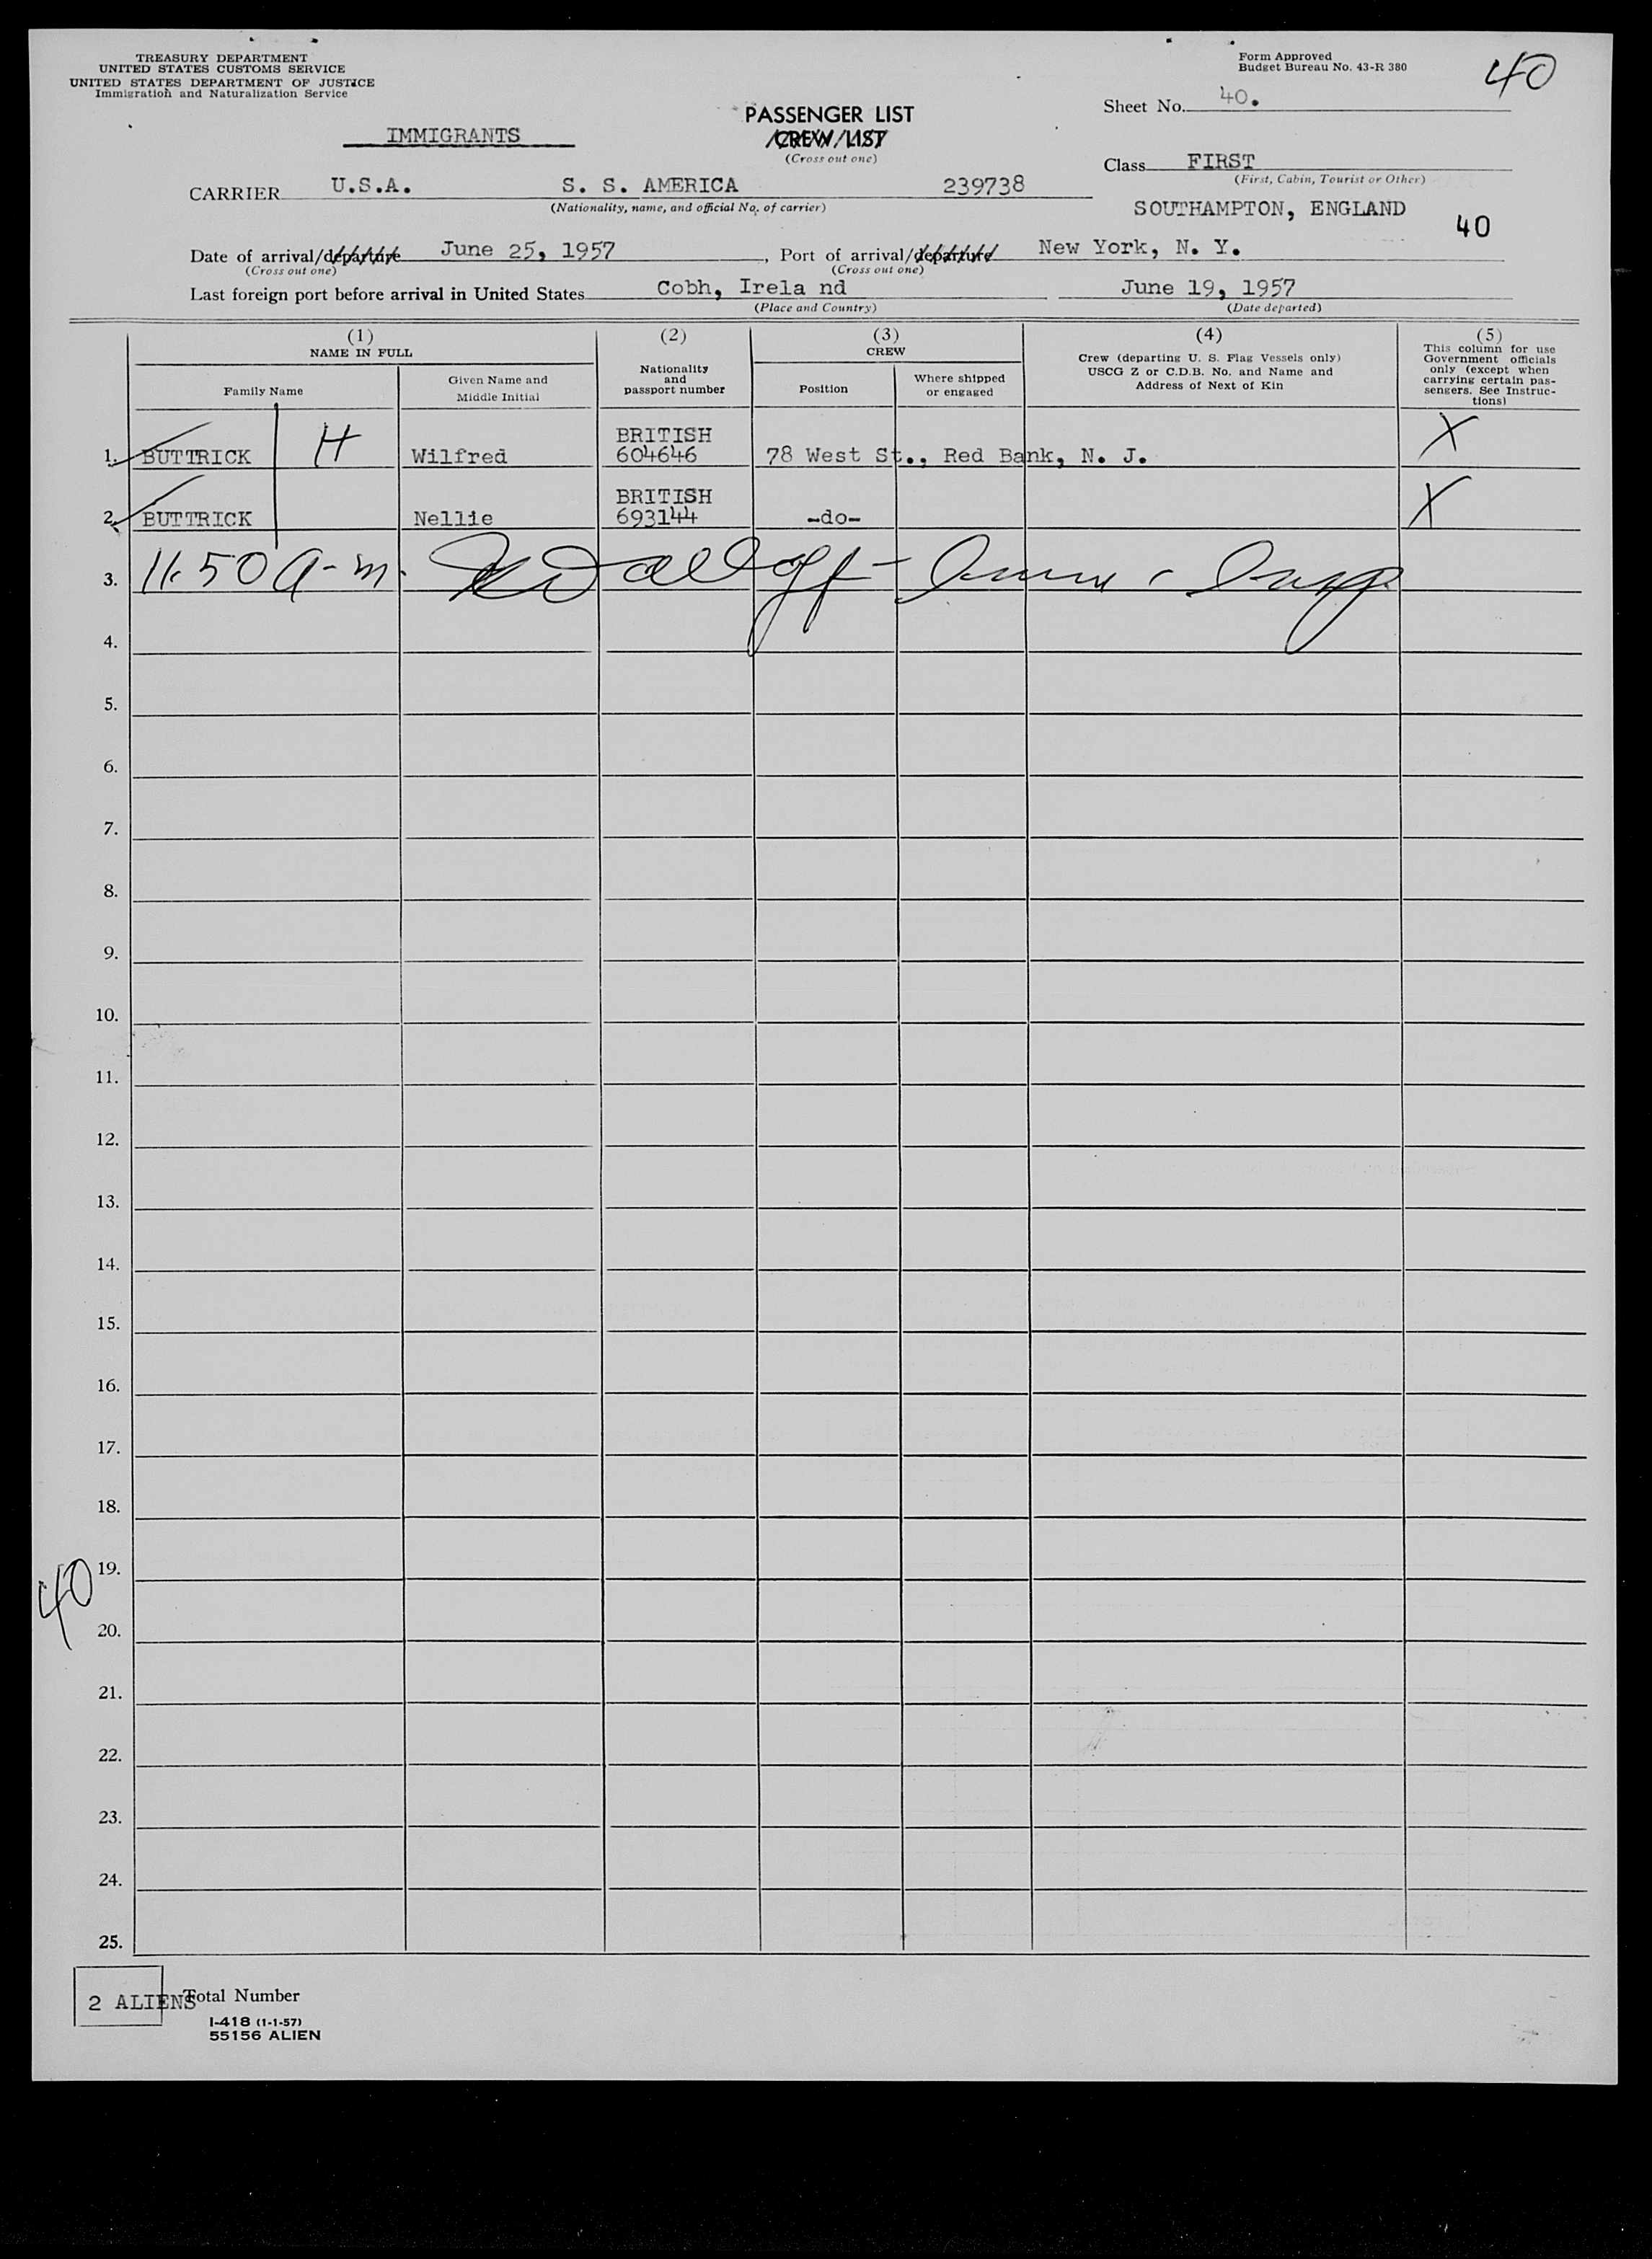 TREASURY DEPARTMENT
UNITED STATES CUSTOMS SERVICE
UNITED STATES DEPARTMENT OF JUSTICE
Immigration and Naturalization Service
Form Approved
Budget Bureau No. 43-R 380
40
Sheet No. 40.
PASSENGER LIST
CREW LIST
(Cross out one)
IMMIGRANTS
Class FIRST
(First, Cabin, Tourist or Other)
CARRIER U.S.A. S. S. AMERICA 239738
(Nationality, name, and official No. of carrier)
SOUTHAMPTON, ENGLAND
40
Date of arrival/departure June 25, 1957, Port of arrival/departure New York, N. Y.
(Cross out one) (Cross out one)
Last foreign port before arrival in United States Cobh, Irela nd June 19, 1957
(Place and Country) (Date departed)
(1)
NAME IN FULL
Family Name
Given Name and
Middle Initial
(2)
Nationality
and
passport number
(3)
CREW
Position
Where shipped
or engaged
(4)
Crew (departing U. S. Flag Vessels only)
USCG Z or C.D.B. No. and Name and
Address of Next of Kin
(5)
This column for use
Government officials
only (except when
carrying certain pas-
sengers. See Instruc-
tions)
BRITISH
1. BUTTRICK H Wilfred 604646 78 West St., Red Bank, N. J. X
BRITISH
2. BUTTRICK Nellie 693144 -do- X
3. 11.50 a-m.
4.
5.
6.
7.
8.
9.
10.
11.
12.
13.
14.
15.
16.
17.
18.
19.
40
20.
21.
22.
23.
24.
25.
2 ALIENS Total Number
I-418 (1-1-57)
55156 ALIEN